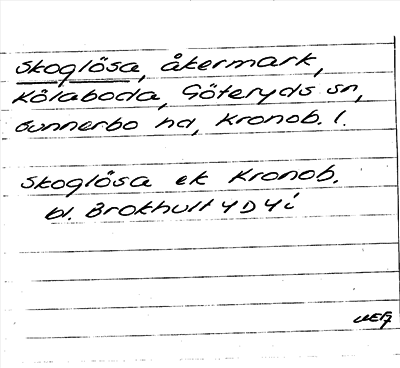 Skoglösa, åkermark,
Kålaboda, Göteryds sn,
Sunnerbo hd, Kronob. l.
Skoglösa ek Kronob.
bl. Brokhult 4D4i